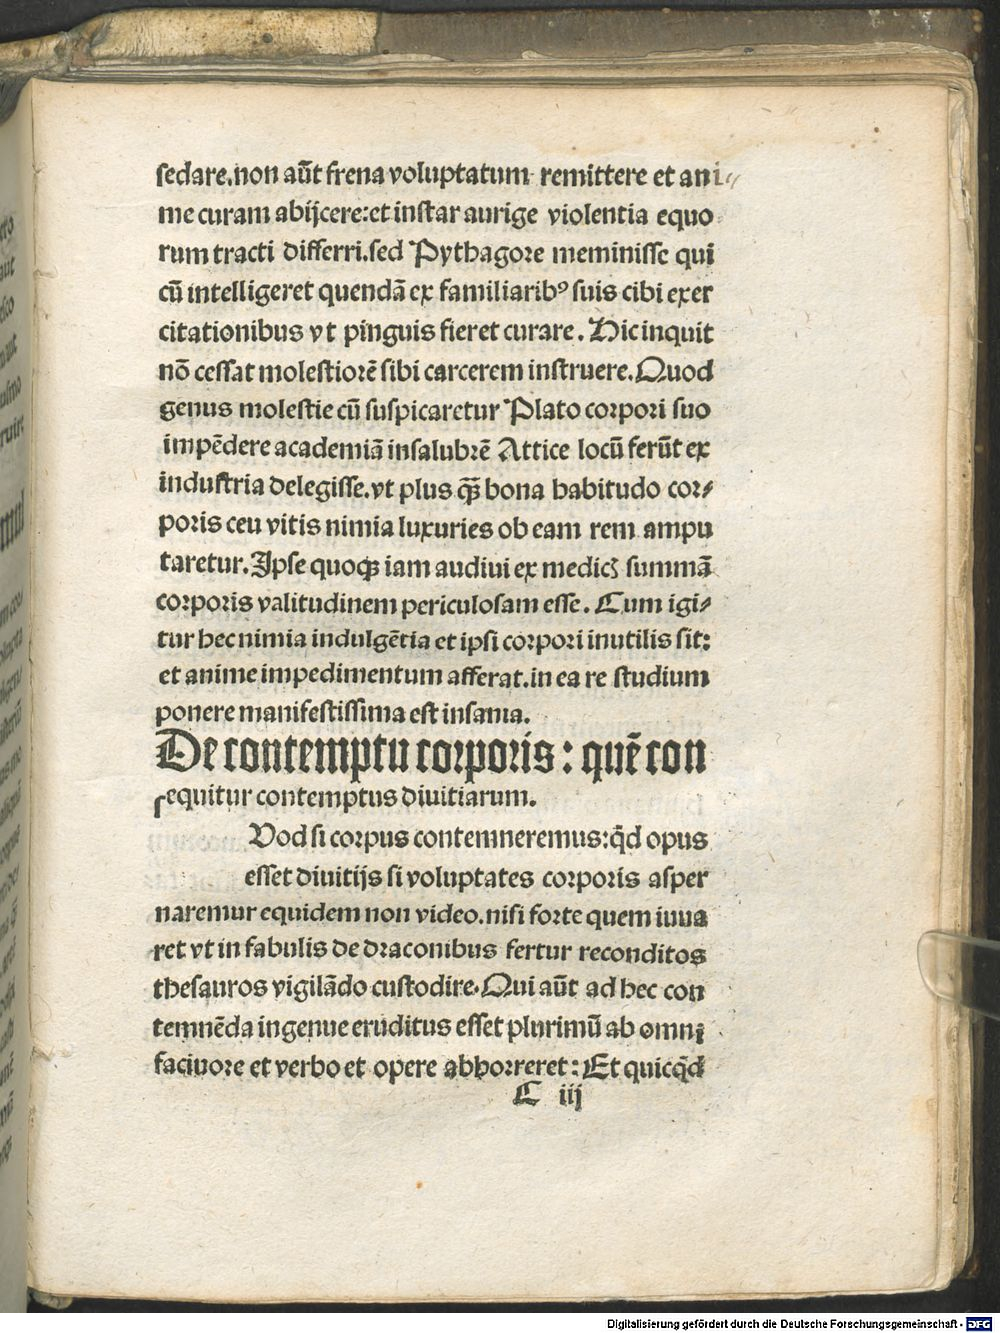 sedare.non aūt frena voluptatum remittere et ani⸗
me curam abijcere:et instar aurige violentia equo⸗
rum tracti differri.sed Pythagore meminisse qui
cū intelligeret quendā ex familiaribꝰ suis cibi exer
citationibus vt pinguis fieret curare. Hic inquit
nō cessat molestiorē sibi carcerem instruere. Quod
genus molestie cū suspicaretur Plato corpori suo
impēdere academiā insalubrē Attice locū ferūt ex
industria delegisse.vt plus qȝ̄ bona habitudo cor⸗
poris ceu vitis nimia luxuries ob eam rem ampu
taretur. Ipse quoqȝ iam audiui ex medicꝭ summā
corporis valitudinem periculosam esse. Cum igi⸗
tur hec nimia indulgētia et ipsi corpori inutilis sit:
et anime impedimentum afferat.in ea re studium
ponere manifestissima est insania.
De contemptu corporis: quē con
sequitur contemptus diuitiarum.
Vod si corpus contemneremus:qd̄ opus
esset diuitijs si voluptates corporis asper
naremur equidem non video.nisi forte quem iuua
ret vt in fabulis de draconibus fertur reconditos
thesauros vigilādo custodire. Qui aūt ad hec con
temnēda ingenue eruditus esset plurimū ab omni
faciuore et verbo et opere abhorreret: Et quicqd̄
C iij
Digitalisierung gefördert durch die Deutsche Forschungsgemeinschaft - DFG